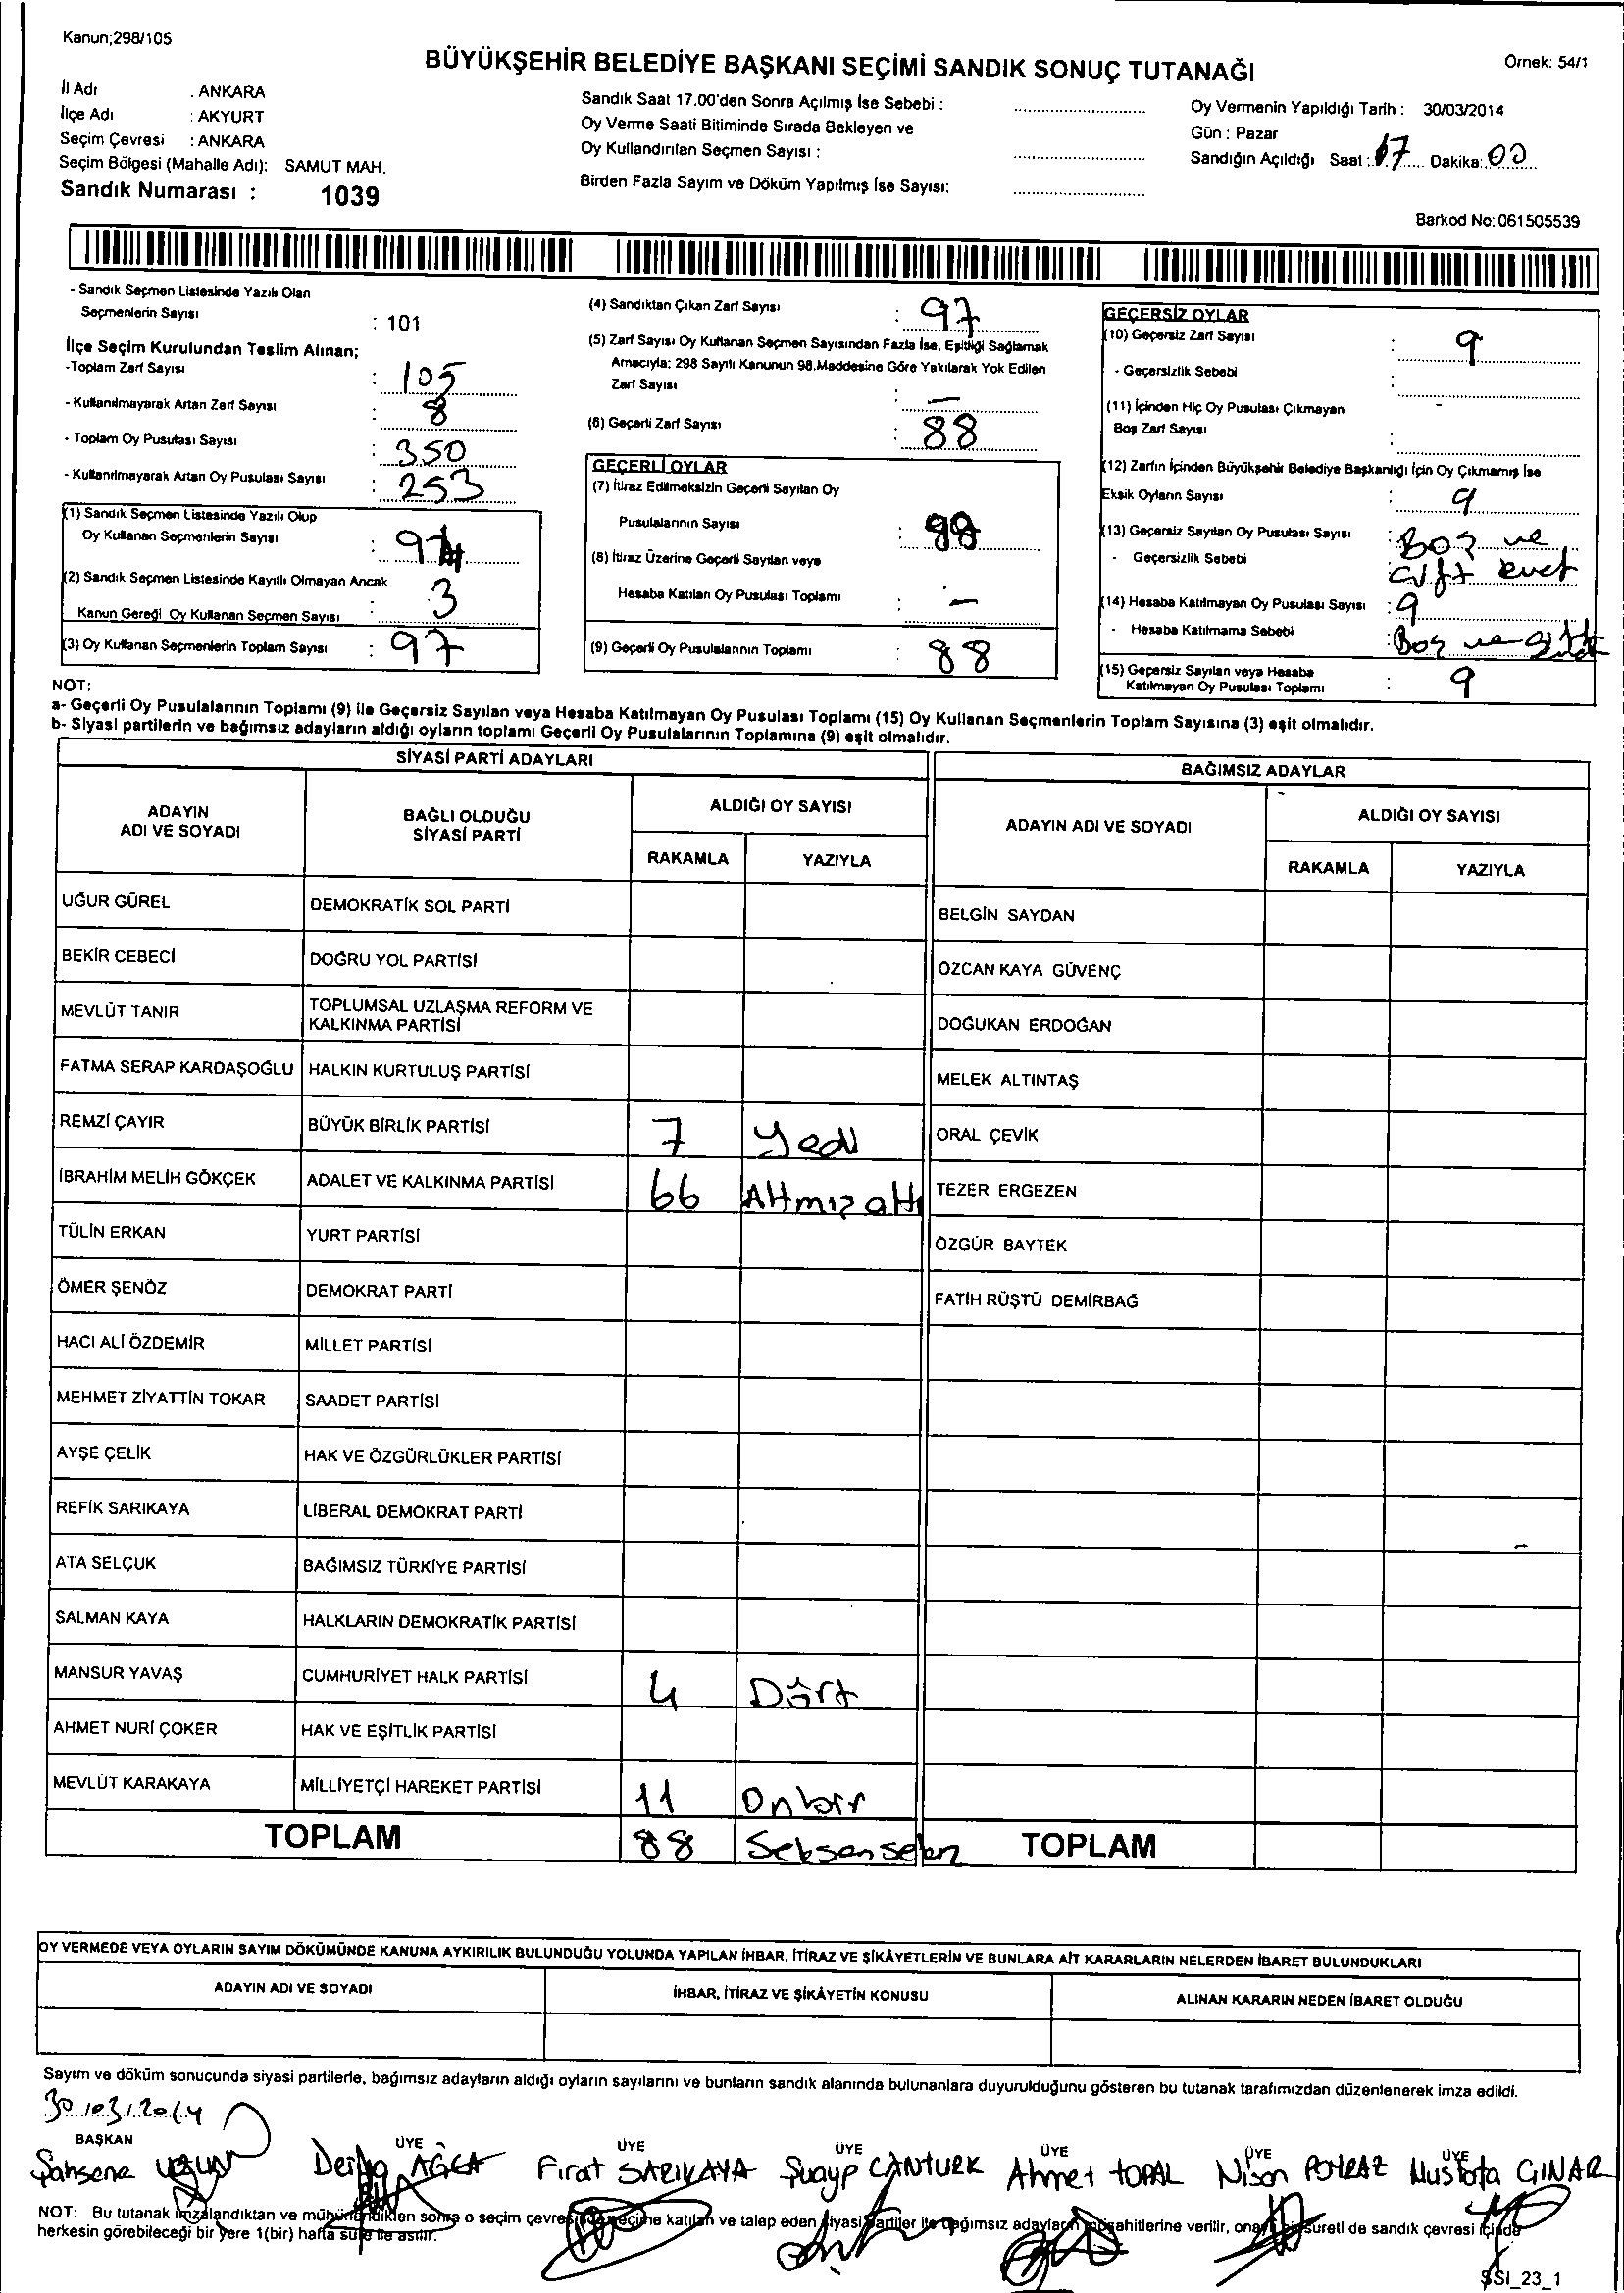 Kanun;298/105
BÜYÜKŞEHİR BELEDİYE BAŞKANI SEÇİMİ SANDIK SONUÇ TUTANAĞI
Örnek: 54/1
İl Adı : ANKARA
İlçe Adı : AKYURT
Seçim Çevresi : ANKARA
Seçim Bölgesi (Mahalle Adı): SAMUT MAH.
Sandık Numarası : 1039
Sandık Saat 17.00'den Sonra Açılmış İse Sebebi :
Oy Verme Saati Bitiminde Sırada Bekleyen ve
Oy Kullandırılan Seçmen Sayısı :
Birden Fazla Sayım ve Döküm Yapılmış İse Sayısı:
Oy Vermenin Yapıldığı Tarih : 30/03/2014
Gün : Pazar
Sandığın Açıldığı Saat : 17 Dakika: 00
Barkod No: 061505539
- Sandık Seçmen Listesinde Yazılı Olan
Seçmenlerin Sayısı : 101
İlçe Seçim Kurulundan Teslim Alınan;
-Toplam Zarf Sayısı : 105
- Kullanılmayarak Artan Zarf Sayısı : 8
- Toplam Oy Pusulası Sayısı : 350
- Kullanılmayarak Artan Oy Pusulası Sayısı : 253
(1) Sandık Seçmen Listesinde Yazılı Olup
Oy Kullanan Seçmenlerin Sayısı :
(2) Sandık Seçmen Listesinde Kayıtlı Olmayan Ancak
Kanun Gereği Oy Kullanan Seçmen Sayısı : 3
(3) Oy Kullanan Seçmenlerin Toplam Sayısı : 97
(4) Sandıktan Çıkan Zarf Sayısı : 97
(5) Zarf Sayısı Oy Kullanan Seçmen Sayısından Fazla İse, Eşitliği Sağlamak
Amacıyla; 298 Sayılı Kanunun 98.Maddesine Göre Yakılarak Yok Edilen
Zarf Sayısı : —
(6) Geçerli Zarf Sayısı : 88
GEÇERLİ OYLAR
(7) İtiraz Edilmeksizin Geçerli Sayılan Oy
Pusulalarının Sayısı : 88
(8) İtiraz Üzerine Geçerli Sayılan veya
Hesaba Katılan Oy Pusulası Toplamı : —
(9) Geçerli Oy Pusulalarının Toplamı : 88
GEÇERSİZ OYLAR
(10) Geçersiz Zarf Sayısı : 9
- Geçersizlik Sebebi :
(11) İçinden Hiç Oy Pusulası Çıkmayan
Boş Zarf Sayısı :
(12) Zarfın İçinden Büyükşehir Belediye Başkanlığı İçin Oy Çıkmamış İse
Eksik Oyların Sayısı : 9
(13) Geçersiz Sayılan Oy Pusulası Sayısı : Boş ve
- Geçersizlik Sebebi çift evet
(14) Hesaba Katılmayan Oy Pusulası Sayısı : 9
- Hesaba Katılmama Sebebi : Boş ve çift
(15) Geçersiz Sayılan veya Hesaba
Katılmayan Oy Pusulası Toplamı : 9
NOT:
a- Geçerli Oy Pusulalarının Toplamı (9) ile Geçersiz Sayılan veya Hesaba Katılmayan Oy Pusulası Toplamı (15) Oy Kullanan Seçmenlerin Toplam Sayısına (3) eşit olmalıdır.
b- Siyasi partilerin ve bağımsız adayların aldığı oyların toplamı Geçerli Oy Pusulalarının Toplamına (9) eşit olmalıdır.
SİYASİ PARTİ ADAYLARI
ADAYIN ADI VE SOYADI
BAĞLI OLDUĞU SİYASİ PARTİ
ALDIĞI OY SAYISI
RAKAMLA YAZIYLA
UĞUR GÜREL DEMOKRATİK SOL PARTİ
BEKİR CEBECİ DOĞRU YOL PARTİSİ
MEVLÜT TANIR TOPLUMSAL UZLAŞMA REFORM VE
KALKINMA PARTİSİ
FATMA SERAP KARDAŞOĞLU HALKIN KURTULUŞ PARTİSİ
REMZİ ÇAYIR BÜYÜK BİRLİK PARTİSİ 7 Yedi
İBRAHİM MELİH GÖKÇEK ADALET VE KALKINMA PARTİSİ 66 Altmışaltı
TÜLİN ERKAN YURT PARTİSİ
ÖMER ŞENÖZ DEMOKRAT PARTİ
HACI ALİ ÖZDEMİR MİLLET PARTİSİ
MEHMET ZİYATTİN TOKAR SAADET PARTİSİ
AYŞE ÇELİK HAK VE ÖZGÜRLÜKLER PARTİSİ
REFİK SARIKAYA LİBERAL DEMOKRAT PARTİ
ATA SELÇUK BAĞIMSIZ TÜRKİYE PARTİSİ
SALMAN KAYA HALKLARIN DEMOKRATİK PARTİSİ
MANSUR YAVAŞ CUMHURİYET HALK PARTİSİ 4 Dört
AHMET NURİ ÇOKER HAK VE EŞİTLİK PARTİSİ
MEVLÜT KARAKAYA MİLLİYETÇİ HAREKET PARTİSİ 11 Onbir
TOPLAM 88 Seksensekiz
BAĞIMSIZ ADAYLAR
ADAYIN ADI VE SOYADI
ALDIĞI OY SAYISI
RAKAMLA YAZIYLA
BELGİN SAYDAN
ÖZCAN KAYA GÜVENÇ
DOĞUKAN ERDOĞAN
MELEK ALTINTAŞ
ORAL ÇEVİK
TEZER ERGEZEN
ÖZGÜR BAYTEK
FATİH RÜŞTÜ DEMİRBAĞ
TOPLAM
OY VERMEDE VEYA OYLARIN SAYIM DÖKÜMÜNDE KANUNA AYKIRILIK BULUNDUĞU YOLUNDA YAPILAN İHBAR, İTİRAZ VE ŞİKÂYETLERİN VE BUNLARA AİT KARARLARIN NELERDEN İBARET BULUNDUKLARI
ADAYIN ADI VE SOYADI İHBAR, İTİRAZ VE ŞİKÂYETİN KONUSU ALINAN KARARIN NEDEN İBARET OLDUĞU
Sayım ve döküm sonucunda siyasi partilerle, bağımsız adayların aldığı oyların sayılarını ve bunların sandık alanında bulunanlara duyurulduğunu gösteren bu tutanak tarafımızdan düzenlenerek imza edildi.
30/03/2014
BAŞKAN ÜYE ÜYE ÜYE ÜYE ÜYE ÜYE
Derya AĞCA Fırat SARIKAYA Şuayp CANTURK Ahmet TOPAL Nison POYRAZ Mustafa ÇINAR
NOT: Bu tutanak imzalandıktan ve mühürlendikten sonra o seçim çevresinde seçime katılan ve talep eden siyasi partiler ile bağımsız adayların müşahitlerine verilir, onaylı bir sureti de sandık çevresi içinde
herkesin görebileceği bir yere 1(bir) hafta süre ile asılır.
SSI_23_1